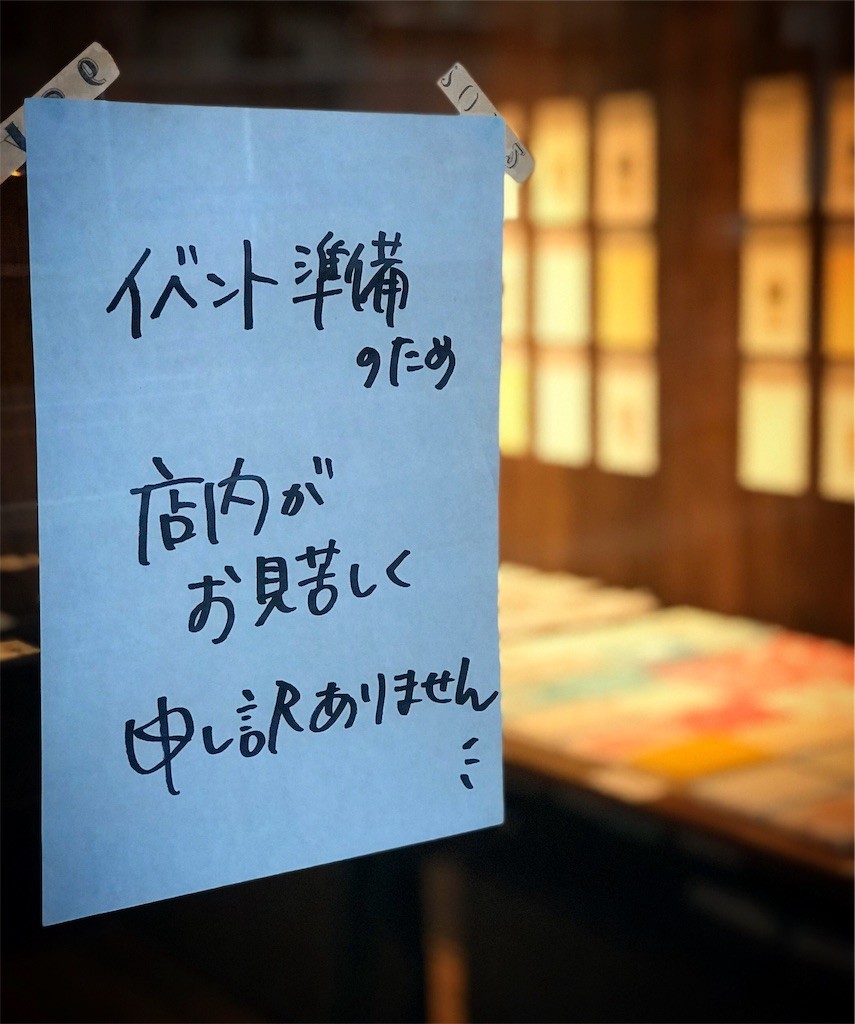 イベント準備
のため
店内が
お見苦しく
申し訳ありません